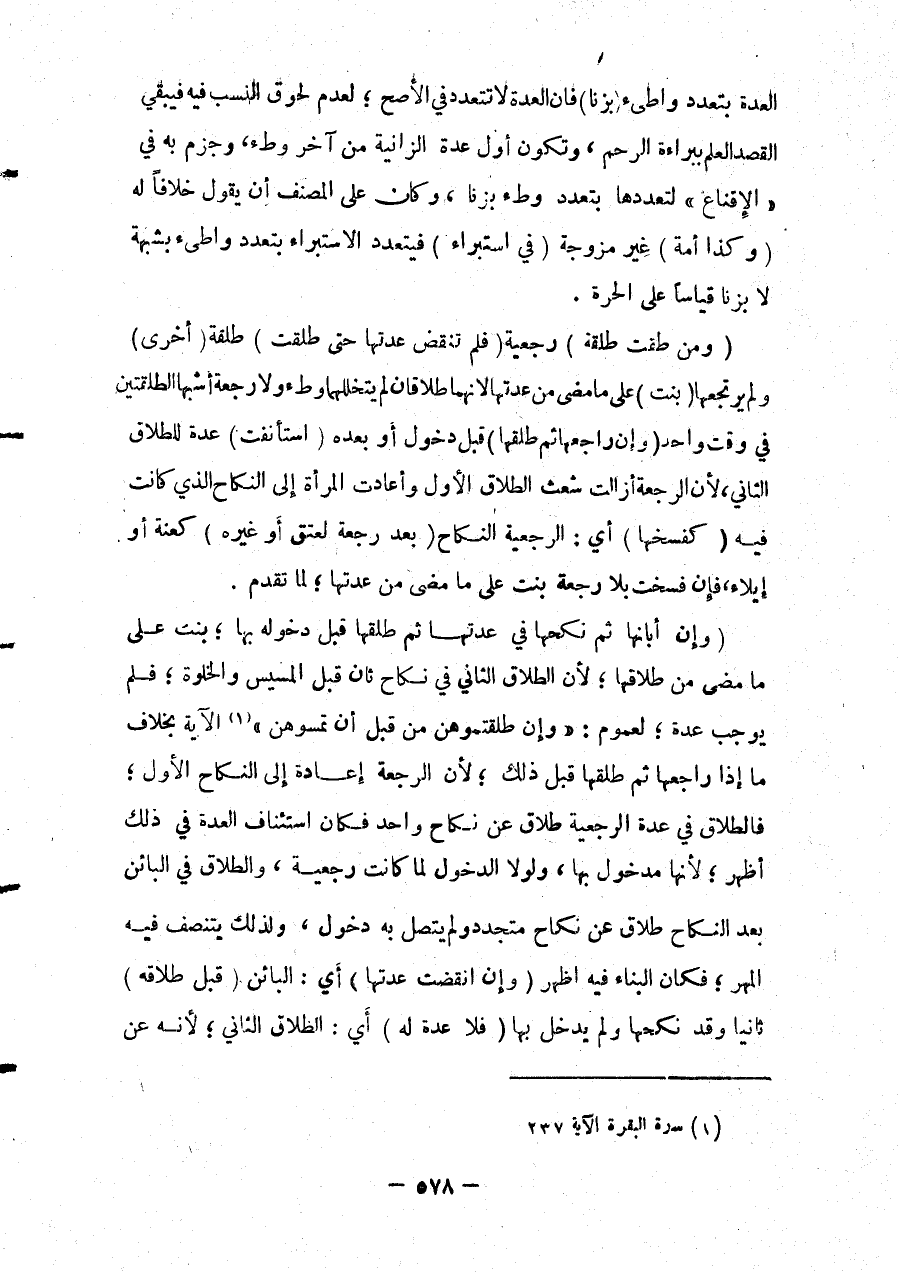 العدة بتعدد واطىء (بزنا) فان العدة لا تتعدد في الأصح ؛ لعدم لحوق النسب فيه فيبقي
القصد العلم ببراءة الرحم ، وتكون أول عدة الزانية من آخر وطء، وجزم به في
« الإقناع » لتعددها بتعدد وطء بزنا ، وكان على المصنف أن يقول خلافاً له
( وكذا أمة ) غير مزوجة ( في استبراء ) فيتعدد الاستبراء بتعدد واطىء بشبهة
لا بزنا قياساً على الحرة .
( ومن طلقت طلقة ) رجعية ( فلم تنقض عدتها حتى طلقت ) طلقة ( أخرى )
ولم يرتجعها ( بنت ) على ما مضى من عدتها لانهما طلاقان لم يتخللهما وطء ولا رجعة أشبها الطلقتين
في وقت واحد ( وإن راجعها ثم طلقها ) قبل دخول أو بعده ( استأنفت ) عدة للطلاق
الثاني، لأن الرجعة أزالت شعث الطلاق الأول وأعادت المرأة إلى النكاح الذي كانت
فيه ( كفسخها ) أي : الرجعية النكاح ( بعد رجعة لعتق أو غيره ) كعنة أو
إيلاء، فإن فسخت بلا رجعة بنت على ما مضى من عدتها ؛ لما تقدم .
( وإن أبانها ثم نكحها في عدتها ثم طلقها قبل دخوله بها ؛ بنت على
ما مضى من طلاقها ؛ لأن الطلاق الثاني في نكاح ثان قبل المسيس والخلوة ؛ فلم
يوجب عدة ؛ لعموم : « وإن طلقتموهن من قبل أن تمسوهن » (١) الآية بخلاف
ما إذا راجعها ثم طلقها قبل ذلك ؛ لأن الرجعة إعادة إلى النكاح الأول ؛
فالطلاق في عدة الرجعية طلاق عن نكاح واحد فكان استئناف العدة في ذلك
أظهر ؛ لأنها مدخول بها ، ولولا الدخول لما كانت رجعية ، والطلاق في البائن
بعد النكاح طلاق عن نكاح متجدد ولم يتصل به دخول ، ولذلك يتنصف فيه
المهر ؛ فكان البناء فيه اظهر ( وإن انقضت عدتها ) أي : البائن ( قبل طلاقه )
ثانيا وقد نكحها ولم يدخل بها ( فلا عدة له ) أي : الطلاق الثاني ؛ لأنه عن
(١) سورة البقرة الآية ٢٣٧
— ٥٧٨ —